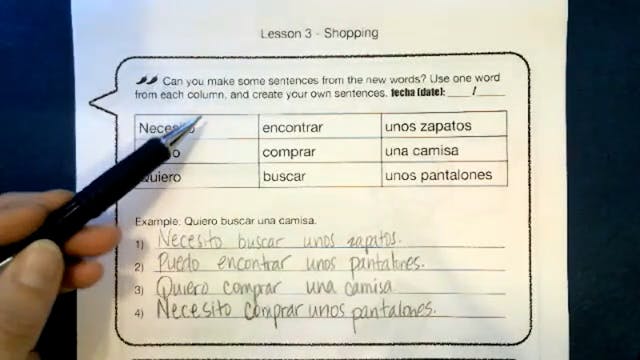 Lesson 3 - Shopping
Can you make some sentences from the new words? Use one word
from each column, and create your own sentences. fecha (date): ____ / ____
Necesito encontrar unos zapatos
comprar una camisa
Quiero buscar unos pantalones
Example: Quiero buscar una camisa.
1) Necesito buscar unos zapatos.
2) Puedo encontrar unos pantalones.
3) Quiero comprar una camisa
4) Necesito comprar unos pantalones.